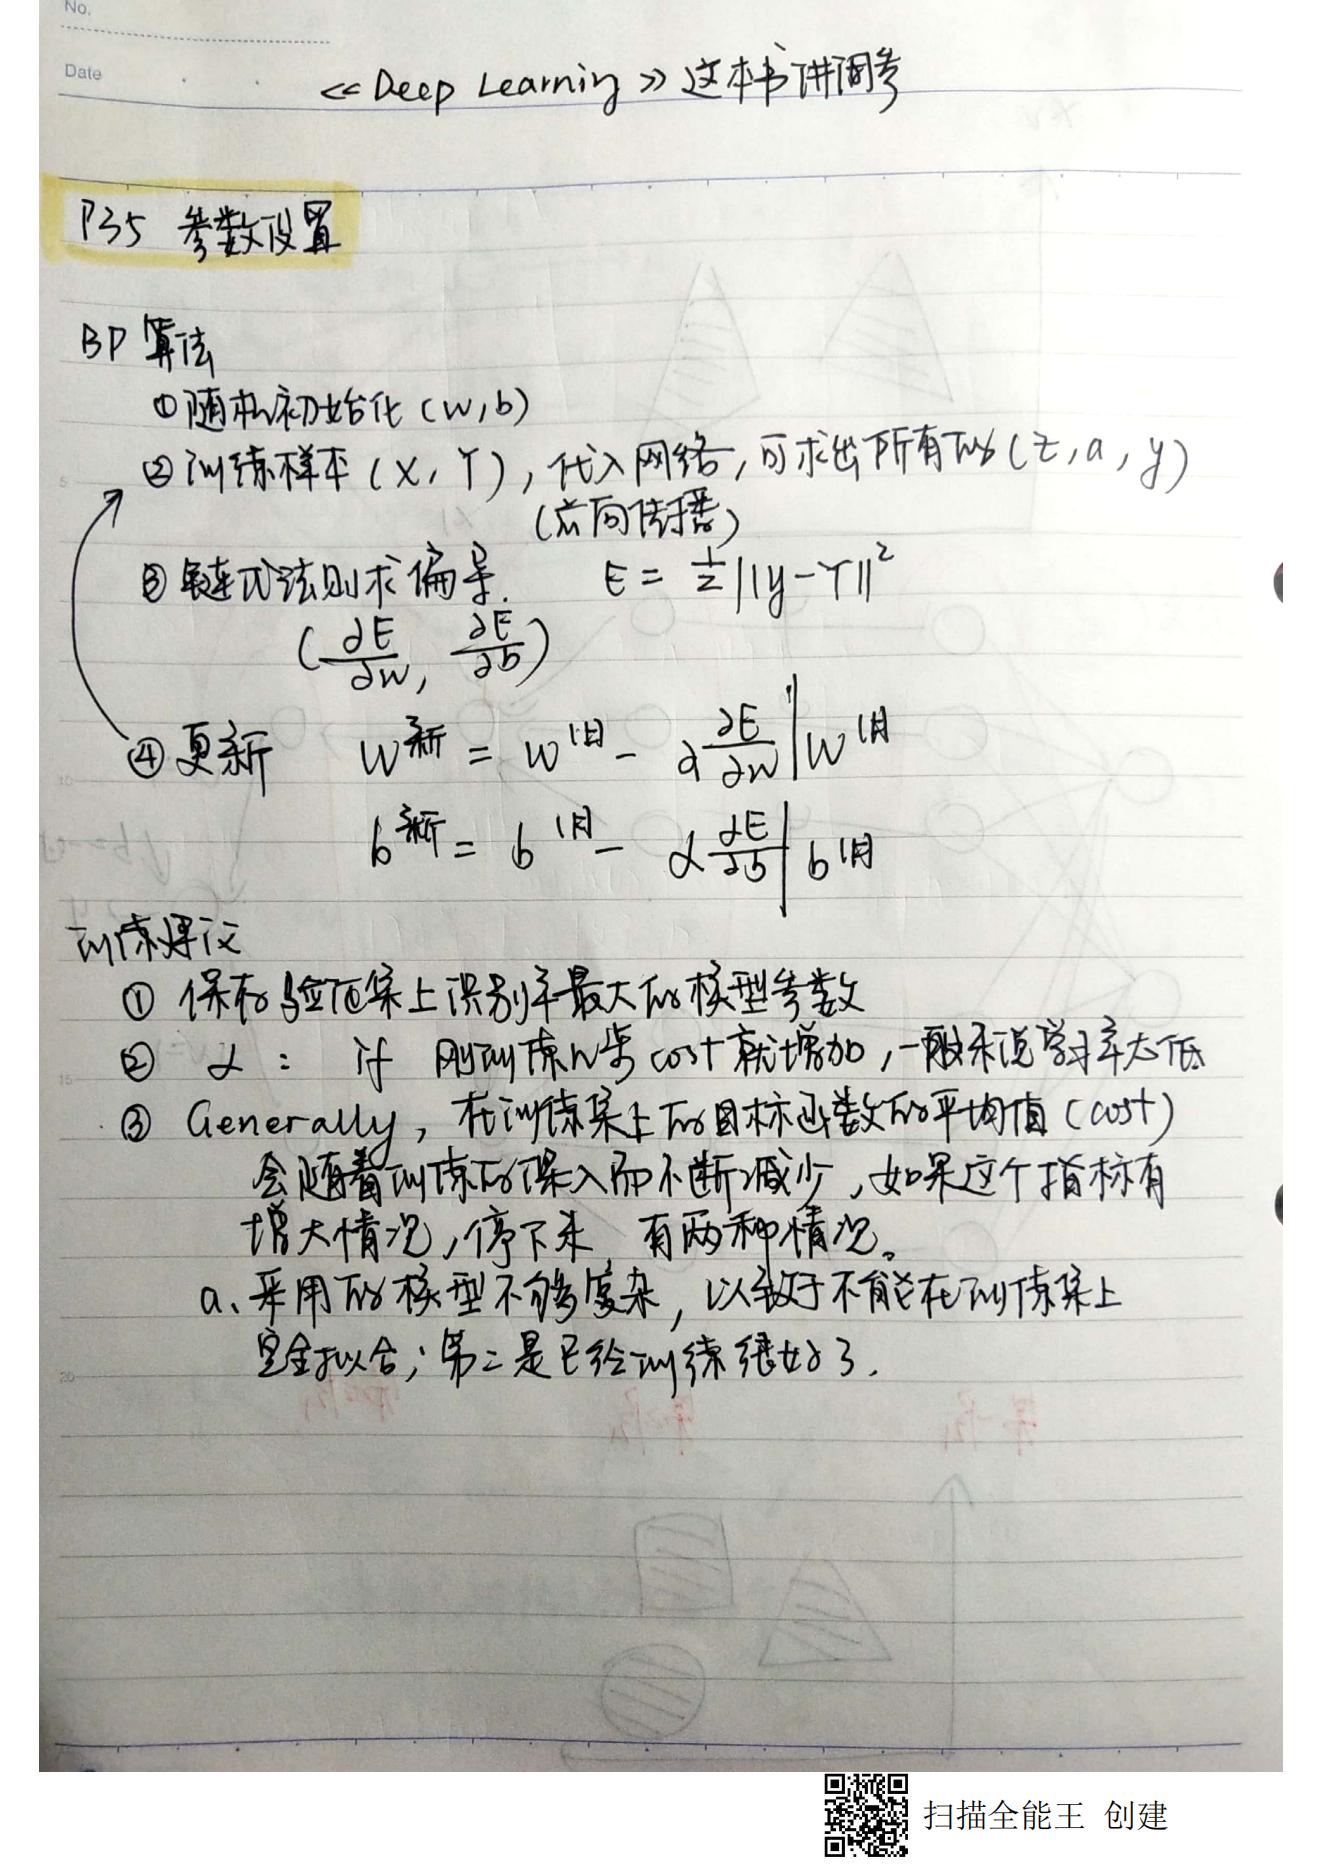 No.
Date
<<Deep Learning>>这本书讲调参
P35 参数设置
BP算法
①随机初始化(w,b)
②训练样本(X,Y),代入网络,可求出所有的(z,a,y)
(前向传播)
③链式法则求偏导. E = 1/2||y-Y||²
(∂E/∂w, ∂E/∂b)
④更新 w^新 = w^旧 - α ∂E/∂w | w^旧
b^新 = b^旧 - α ∂E/∂b | b^旧
训练建议
① 保存验证集上识别率最大的模型参数
② α: if 刚训练几步cost就增加,一般来说学习率太低
③ Generally, 在训练集上的目标函数的平均值(cost)
会随着训练的深入而不断减少,如果这个指标有
增大情况,停下来 有两种情况。
a、采用的模型不够复杂,以致于不能在训练集上
完全拟合;第二是已经训练很好了.
5
10
15
20
扫描全能王 创建